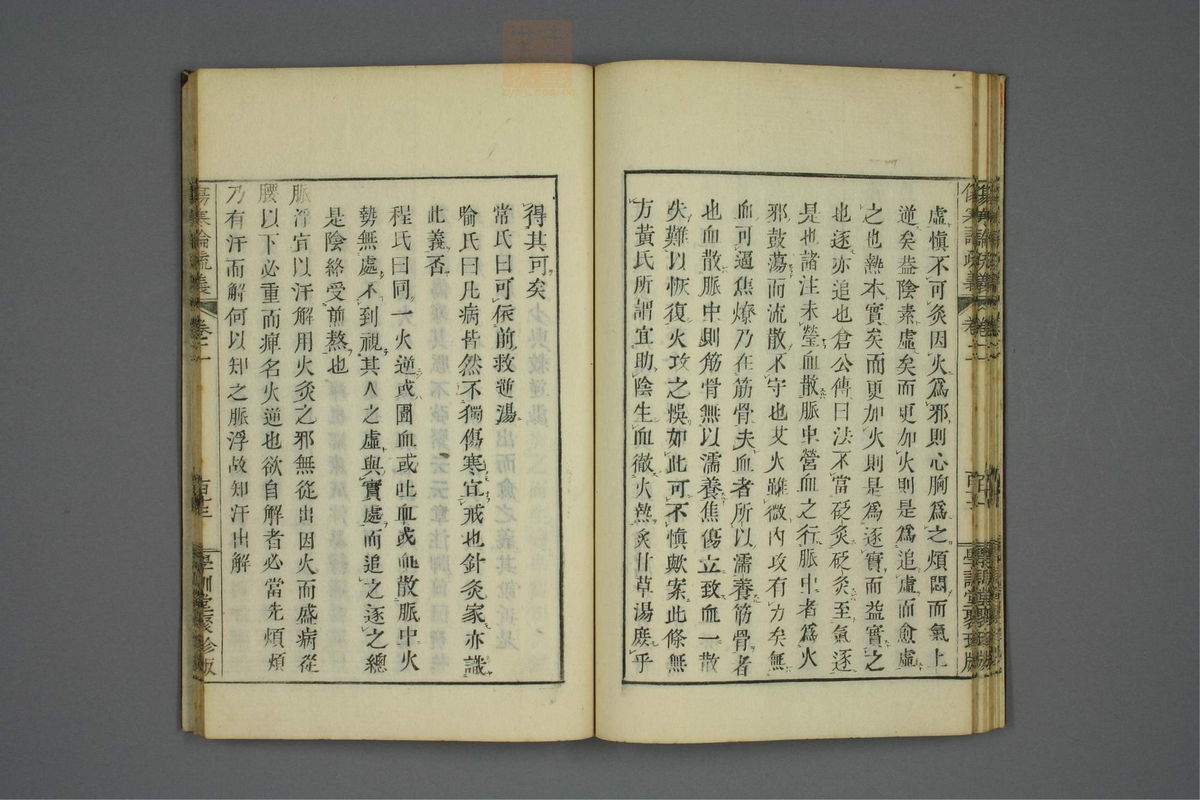 虛慎不可灸因火為邪則心胸為之煩悶而氣上
逆矣蓋陰素虛矣而更加火則是為追虛而愈虛
之也熱本實矣而更加火則是為逐實而益實之
也逐亦追也倉公傳曰法不當砭灸砭灸至氣逐
是也諸注未瑩血散脈中營血之行脈中者為火
邪鼓蕩而流散不守也艾火雖微內攻有力矣無
血可逼焦燎乃在筋骨夫血者所以濡養筋骨者
也血散脈中則筋骨無以濡養焦傷立致血一散
失難以恢復火攻之悞如此可不慎歟案此條無
方黃氏所謂宜助陰生血徹火熱炙甘草湯庶乎
得其可矣
常氏曰可依前救逆湯
喻氏曰凡病皆然不獨傷寒宜戒也針灸家亦識
此義否
程氏曰同一火逆或圊血或吐血或血散脈中火
勢無處不到視其人之虛與實處而追之逐之總
是陰絡受煎熬也
脈浮宜以汗解用火灸之邪無從出因火而盛病從
腰以下必重而痺名火逆也欲自解者必當先煩煩
乃有汗而解何以知之脈浮故知汗出解
傷寒論疏義
卷二
學訓堂聚珍版